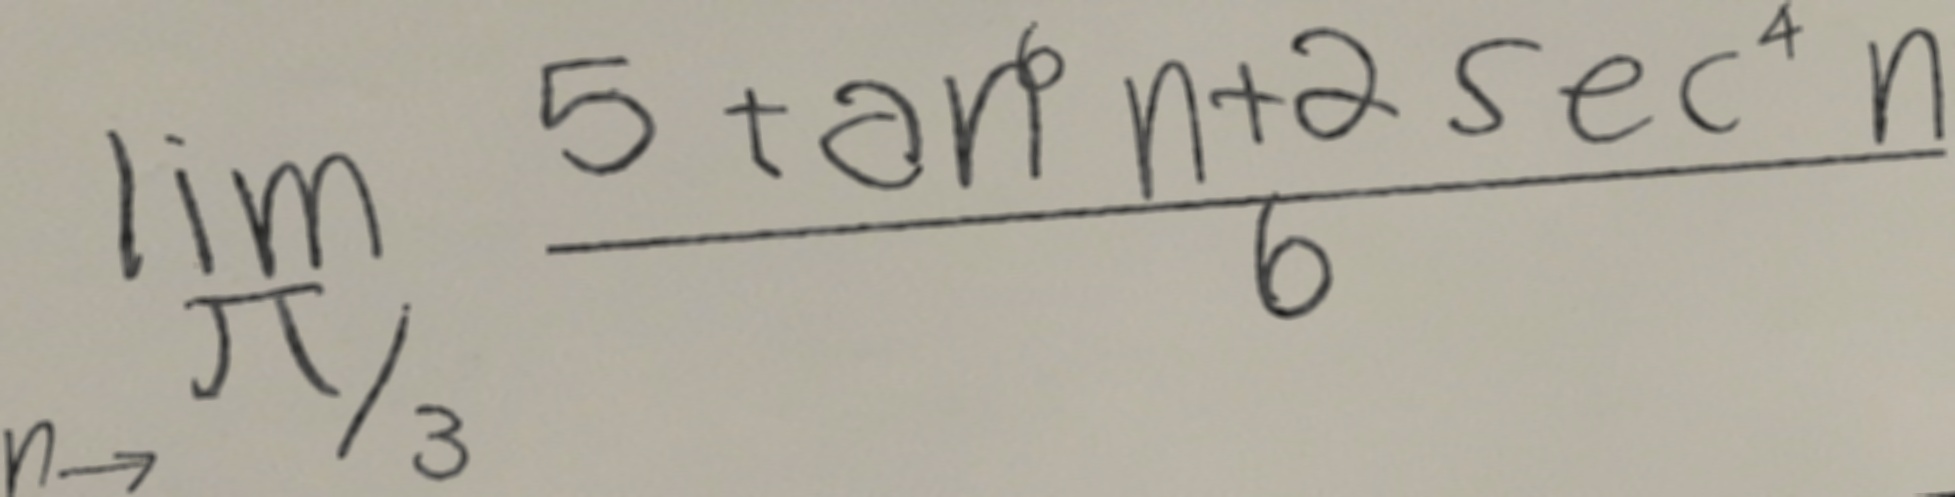 lim n→π/3 (5 tan⁶ n+2 sec⁴ n)/6